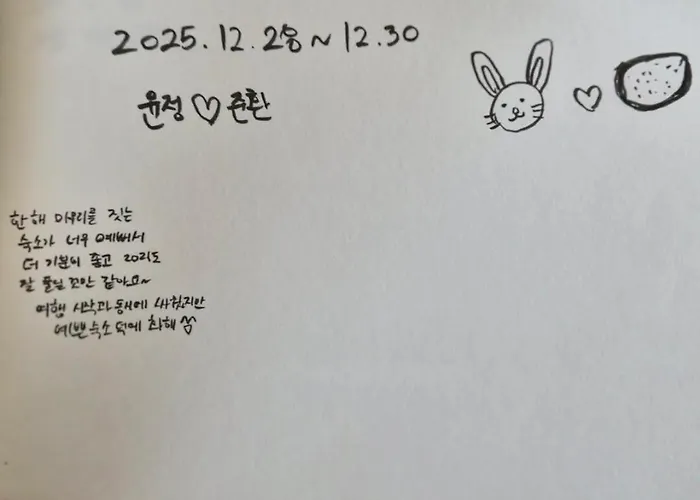 2025.12.28 ~ 12.30
윤정 ♡ 준환
한 해 마무리를 짓는
숙소가 너무 예뻐서
더 기분이 좋고 2026도
잘 풀릴 것만 같아요~
여행 시작과 동시에 싸웠지만
예쁜 숙소 덕에 화해 씀